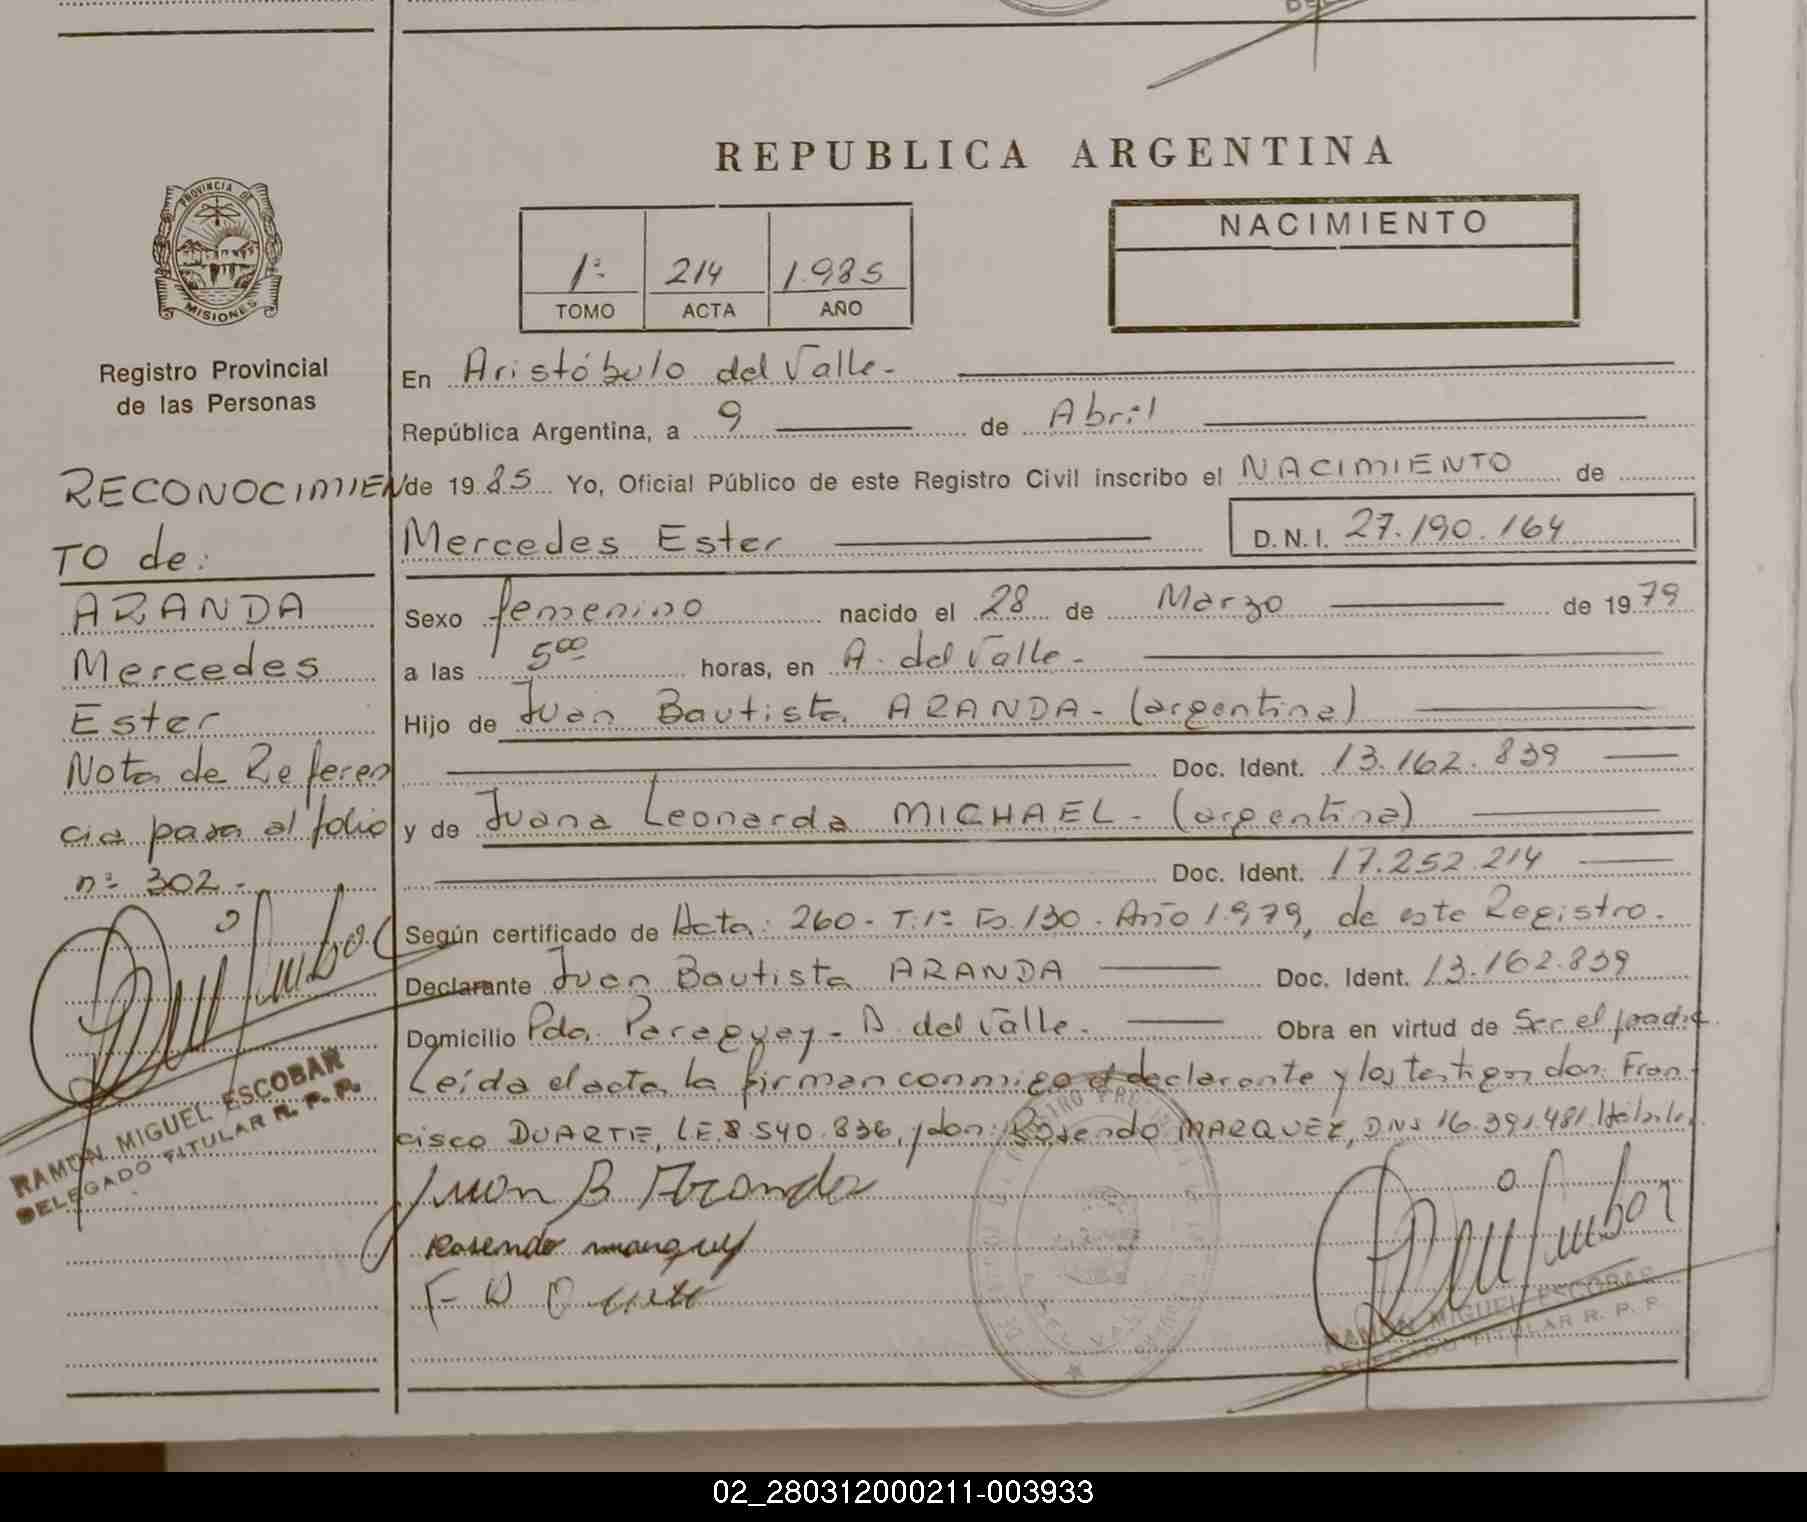 REPUBLICA ARGENTINA
PROVINCIA DE
MISIONES
Registro Provincial
de las Personas
1º 214 1.985
TOMO ACTA AÑO
NACIMIENTO
RECONOCIMIEN
TO de:
ARANDA
Mercedes
Ester
Nota de Referen
cia para al folio
nº 302.-
RAMON MIGUEL ESCOBAR
DELEGADO TITULAR R. P. P.
En Aristóbulo del Valle.-
República Argentina, a 9 de Abril
de 1985 Yo, Oficial Público de este Registro Civil inscribo el NACIMIENTO de
Mercedes Ester D.N.I. 27.190.164
Sexo femenino nacido el 28 de Marzo de 1979
a las 5⁰⁰ horas, en A. del Valle.-
Hijo de Juan Bautista ARANDA.- (argentina)
Doc. Ident. 13.162.839
y de Juana Leonarda MICHAEL.- (argentina)
Doc. Ident. 17.252.214
Según certificado de Acta: 260.- T.1º Fº.130. Año 1.979, de este Registro.
Declarante Juan Bautista ARANDA Doc. Ident. 13.162.839
Domicilio Pdo. Paraguay.- A. del Valle. Obra en virtud de Ser el padre
Leída el acta la firman conmigo el declarante y los testigos don: Fran-
cisco DUARTE, L.E.8.540.836, y don: Rosendo MARQUEZ, DNI 16.391.481.
Juan B Aranda
Rosendo marquez
RAMON MIGUEL ESCOBAR
DELEGADO TITULAR R. P. P.
02_280312000211-003933